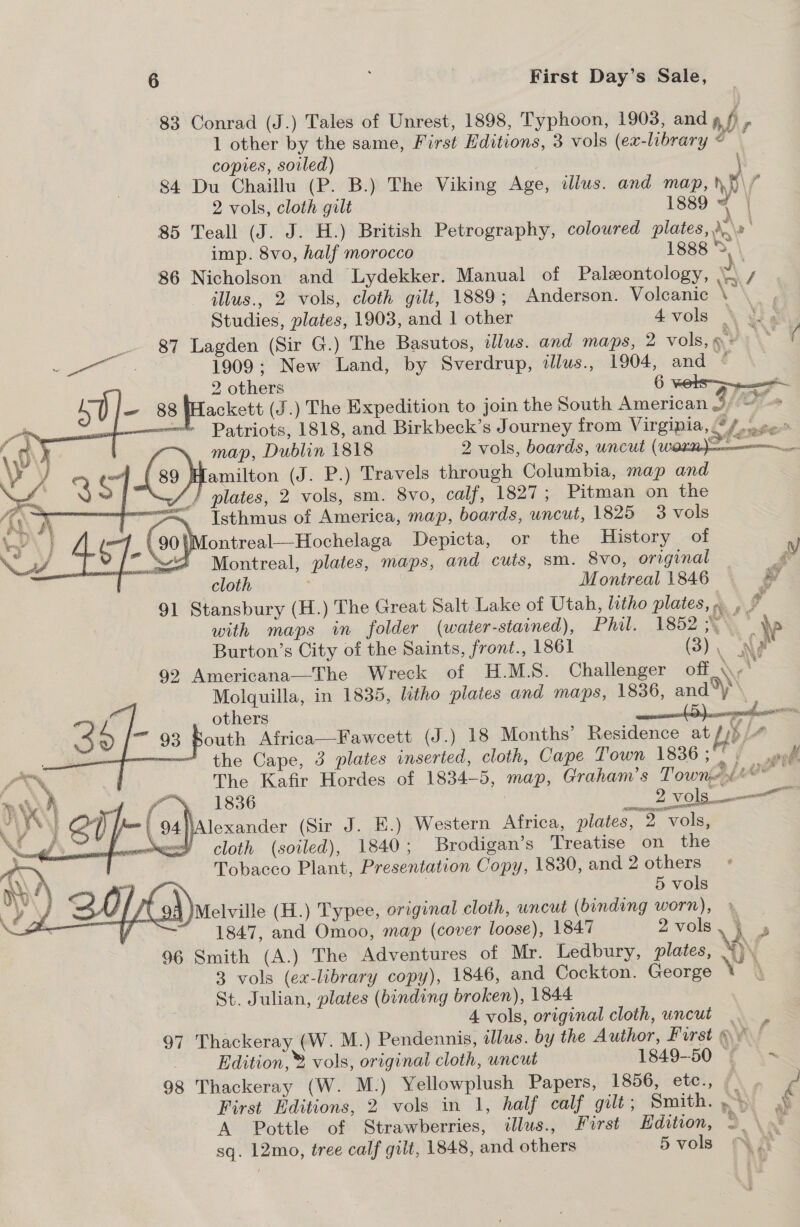 6 First Day's Sale,
83 Conrad (J.) Tales of Unrest, 1898, Typhoon, 1903, and
1 other by the same, First Editions, 3 vols (ex-library
copies, soiled)
84 Du Chaillu (P. B.) The Viking Age, illus. and map,
2 vols, cloth gilt 1889
85 Teall (J. J. H.) British Petrography, coloured plates,
imp. 8vo, half morocco 1888
86 Nicholson and Lydekker. Manual of Palæontology,
illus., 2 vols, cloth gilt, 1889; Anderson. Volcanic
Studies, plates, 1903, and 1 other 4 vols
87 Lagden (Sir G.) The Basutos, illus. and maps, 2 vols,
1909; New Land, by Sverdrup, illus., 1904, and
2 others 6 vols
50/- 88 Hackett (J.) The Expedition to join the South American
Patriots, 1818, and Birkbeck's Journey from Virginia,
map, Dublin 1818 2 vols, boards, uncut (worn)
35/- 89 Hamilton (J. P.) Travels through Columbia, map and
plates, 2 vols, sm. 8vo, calf, 1827; Pitman on the
Isthmus of America, map, boards, uncut, 1825 3 vols
45/- 90 Montreal—Hochelaga Depicta, or the History of
Montreal, plates, maps, and cuts, sm. 8vo, original
cloth Montreal 1846
91 Stansbury (H.) The Great Salt Lake of Utah, litho plates,
with maps in folder (water-stained), Phil. 1852;
Burton's City of the Saints, front., 1861 (3)
92 Americana—The Wreck of H.M.S. Challenger off
Molquilla, in 1835, litho plates and maps, 1836, and
others (5)
35/- 93 South Africa—Fawcett (J.) 18 Months' Residence at
the Cape, 3 plates inserted, cloth, Cape Town 1836;
The Kafir Hordes of 1834-5, map, Graham's Town
1836 2 vols
94 Alexander (Sir J. E.) Western Africa, plates, 2 vols,
cloth (soiled), 1840; Brodigan's Treatise on the
Tobacco Plant, Presentation Copy, 1830, and 2 others
5 vols
30/- Melville (H.) Typee, original cloth, uncut (binding worn),
1847, and Omoo, map (cover loose), 1847 2 vols
96 Smith (A.) The Adventures of Mr. Ledbury, plates,
3 vols (ex-library copy), 1846, and Cockton. George
St. Julian, plates (binding broken), 1844
4 vols, original cloth, uncut
97 Thackeray (W. M.) Pendennis, illus. by the Author, First
Edition, 2 vols, original cloth, uncut 1849-50
98 Thackeray (W. M.) Yellowplush Papers, 1856, etc.,
First Editions, 2 vols in 1, half calf gilt; Smith.
A Pottle of Strawberries, illus., First Edition,
sq. 12mo, tree calf gilt, 1848, and others 5 vols